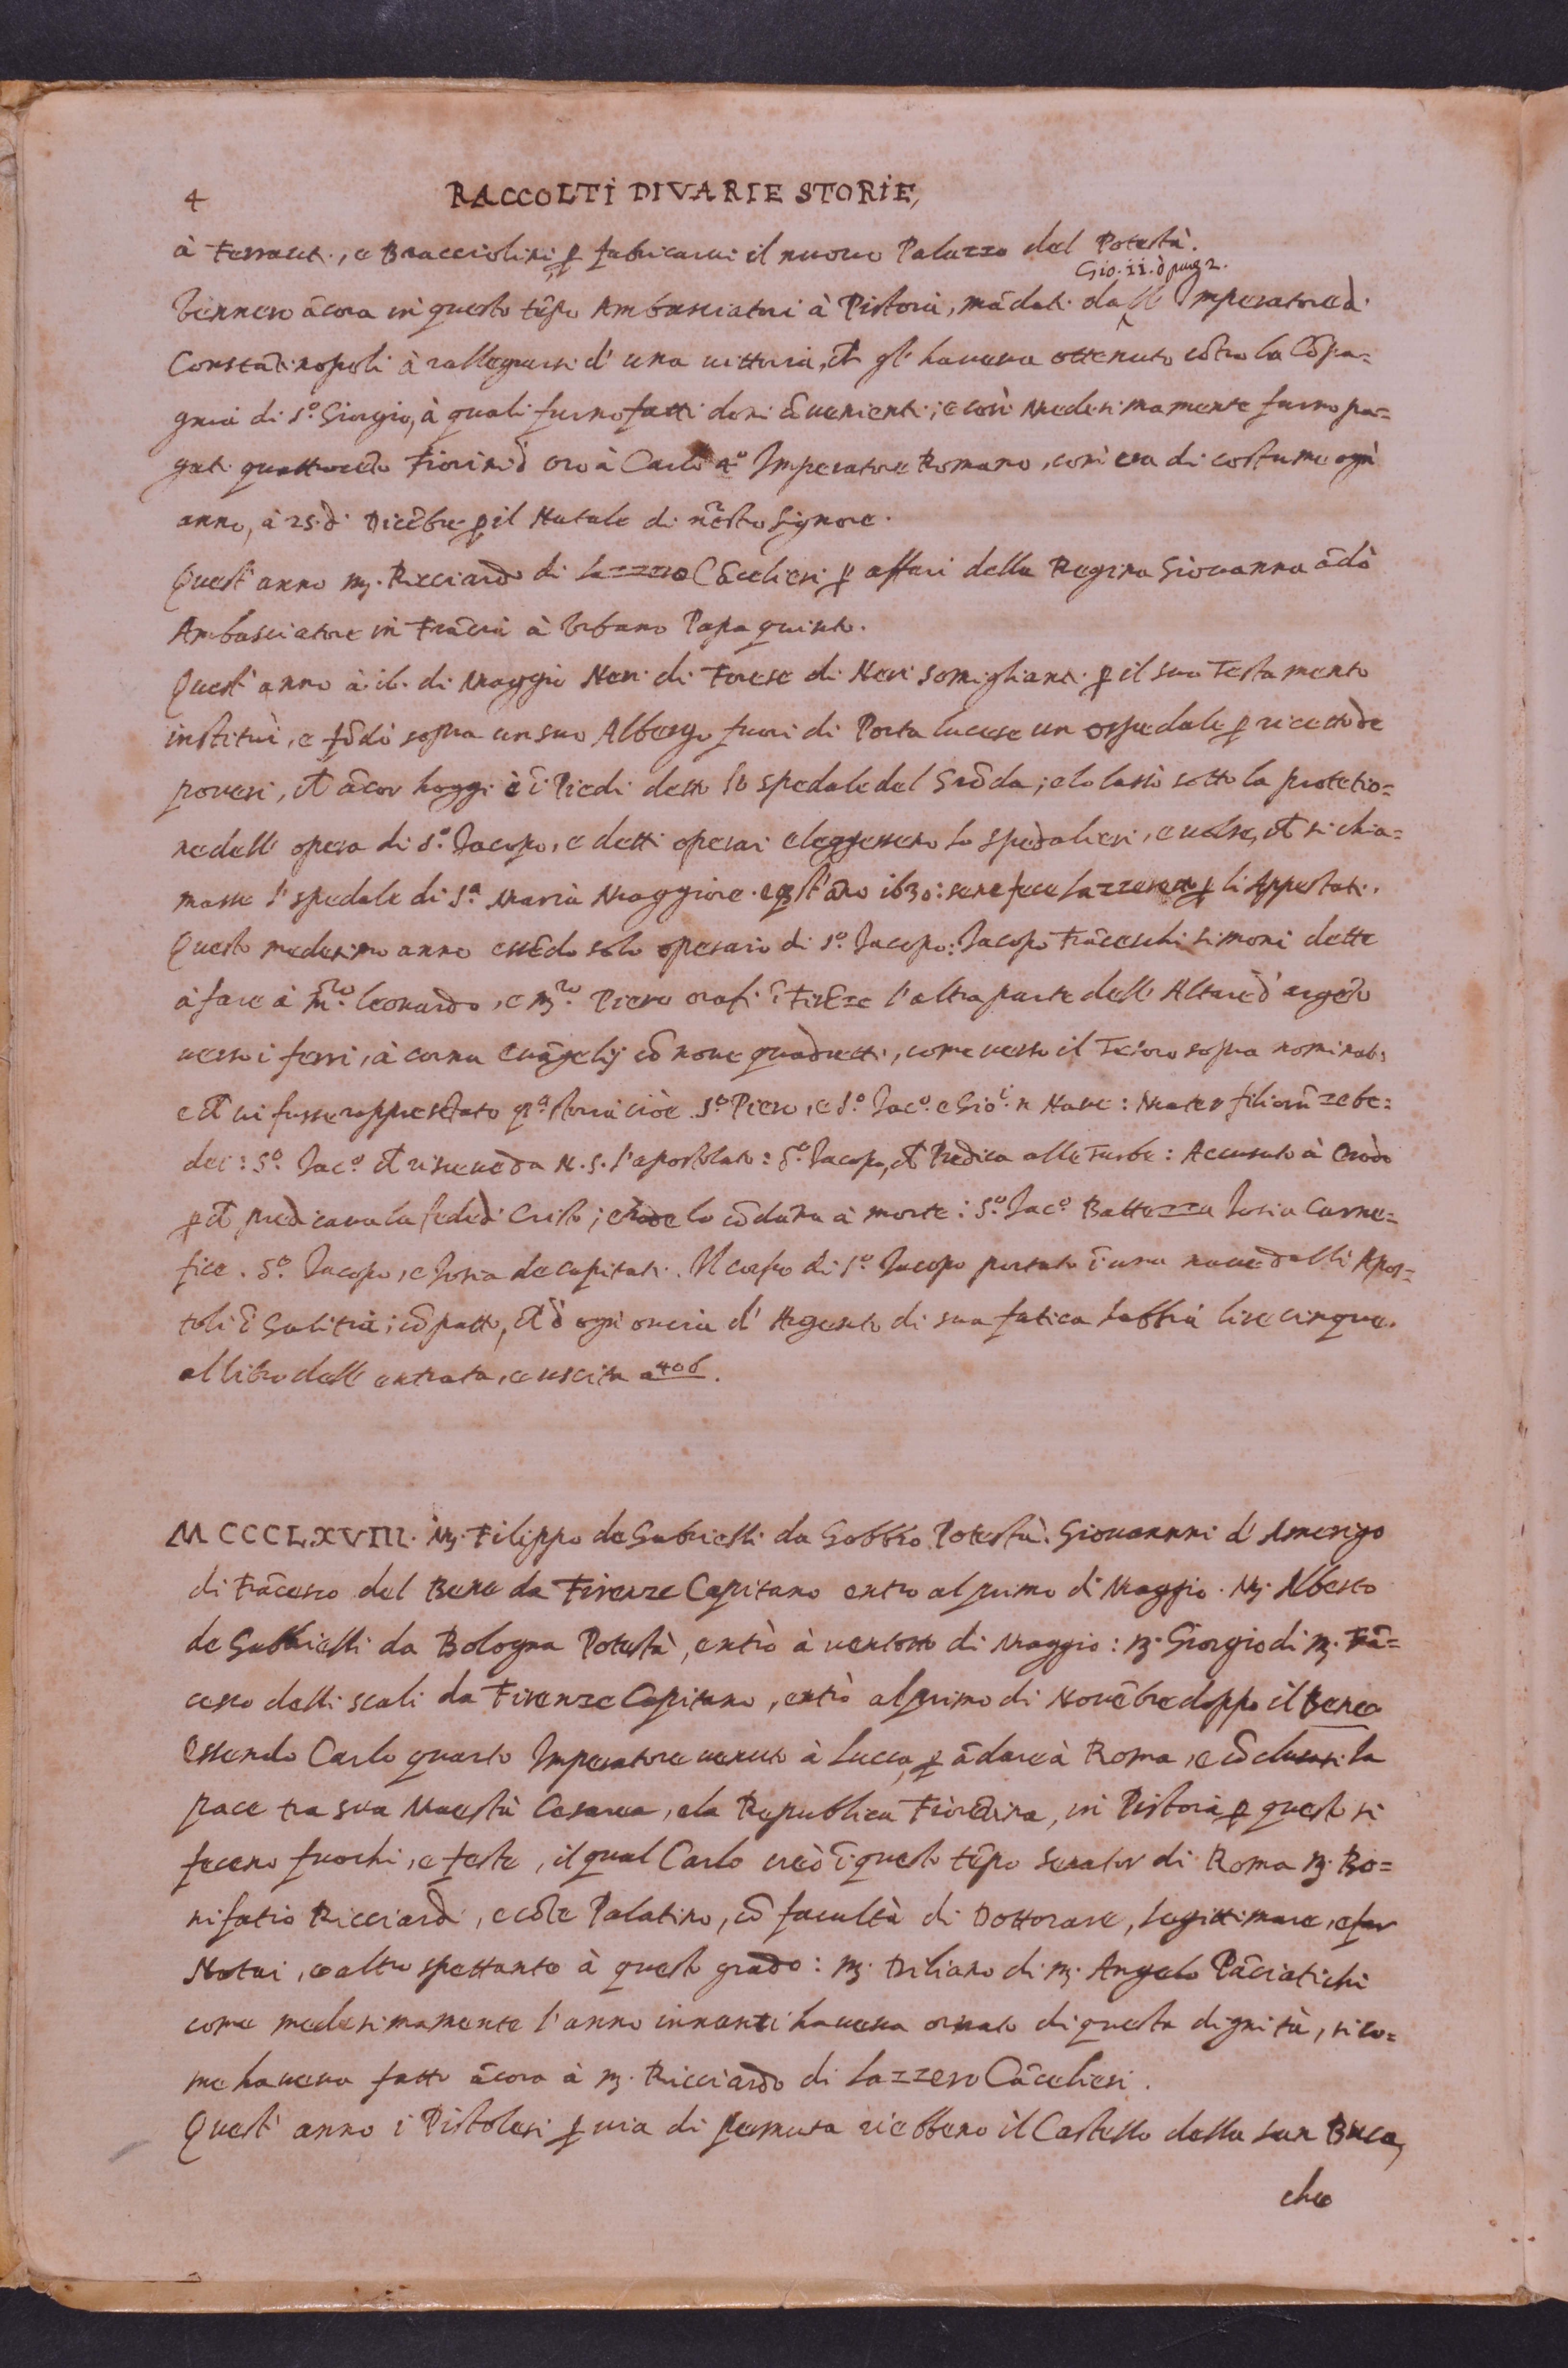 4 RACCOLTI DI VARIE STORIE,
à Ferracci, e Bracciolini, ꝑ fabricarui il nuouo Palazzo del Potestà.
Gio. ii. d̄
Vennero ācora in questo tēpo Ambasciatori à Pistoia, mādati dall' Imperatore d̄i
Constātinopoli à rallegrarsi d' una uittoria, ch̄ gl' haueua ottenuto cōtro la Cōpa=
gnia di S.º Giorgio, à quali furno fatti doni cōuenienti; e così medesimamente furno pa=
gati quattrocēto Fiorini d' oro à Carlo 4º Imperatore Romano, così era di costume ogni
anno, à 25. d̄i Dicēbre ꝑ il Natale di nēstro Signore.
Quest' anno m̨. Ricciardo di Lazzero Cācelieri ꝑ affari della Regina Giouanna ādò
Ambasciatore in Frācia à Vrbano Papa quinto.
Quest' anno à i6. di Maggio Neri di Forese di Neri somiglianti ꝑ il suo Testamento
instituì, e fōdò sopra un suo Albergo fuori di Porta lucese un ospedale ꝑ ricetto de
poueri, ch̄ ācor hoggi è ī Piedi detto lo spedale del Grōda; e lo lassò sotto la protetio=
ne dell' opera di S.º Jacopo, e detti operai eleggessero lo spedalieri, e uolse, ch̄ si chia=
masse l' spedale di S.ª Maria Maggiore. e qst' āno i630: se ne fece Lazzeretto ꝑ li Appestati.
Questo medesimo anno essēdo solo operaio di S.º Jacopo: Jacopo Frāceschi simoni dette
à fare à m̄.ro leonardo, e m̨.ro Piero orafi ī Firēze l'altra parte dell' Altare d' argēto
uerso i ferri, à cornu euāgelij cō noue quadretti, come uerso il Tesoro sopra nominato
e ch̄ ui fusse rappresētato qª storia cioè S.º Piero, e S.º Jac.º e Gio: ī Naue: Mater filiorū zebe=
dei: S.º Jac.º ch̄ riceue da N. S. l'apostolato: S.º Jacopo, ch̄ Predica alle Turbe: Accusato à Erode
ꝑ ch̄ predicaua la fede d̄i Cristo; erode lo cōdāna à morte: S.º Jac.º Battezza Josia Carne=
fice. S.º Jacopo, e Josia decapitati. Il corpo di S.º Jacopo portato ī una naue dalli Apos=
toli ī Galitia; cō patto, ch̄ d' ogni oncia d' Argento di sua fatica habbia lire cinque.
al libro dell' entrata, e uscita a 406.
MCCCLXVIII. M̨. Filippo de Gabrielli da Gobbio Potestà. Giouannni d' Amerigo
di Frācesco del Bene da Firenze Capitano entro al primo di Maggio. M̨. Alberto
de Gabrielli da Bologna Potestà, entrò à uentotto di Maggio: m̨. Giorgio di m̨. Frā=
cesco delli scali da Firenze Capitano, entrò al primo di Nouēbre doppo il Bene
Essendo Carlo quarto Imperatore uenuto à Lucca, ꝑ ādare à Roma, e cōclusasi la
pace tra sua Maestà Cesarea, e la Republica Fiorētina, in Pistoia ꝑ questo si
fecero fuochi, e feste, il qual Carlo creò ī questo tēpo Senator di Roma m̨. Bo=
nifatio Ricciardi, e cōte Palatino, cō facultà di Dottorare, legittimare, e far
Notai, e altro spettante à questo grado: m̨. Driliano di m̨. Angelo Pāciatichi
come medesimamente l'anno innanti haueua ornato di questa dignità, sico=
me haueua fatto ācora à m̨. Ricciardo di Lazzero Cācelieri.
Quest' anno i Pistolesi ꝑ uia di permuta riebbero il Castello della San Buca,
che